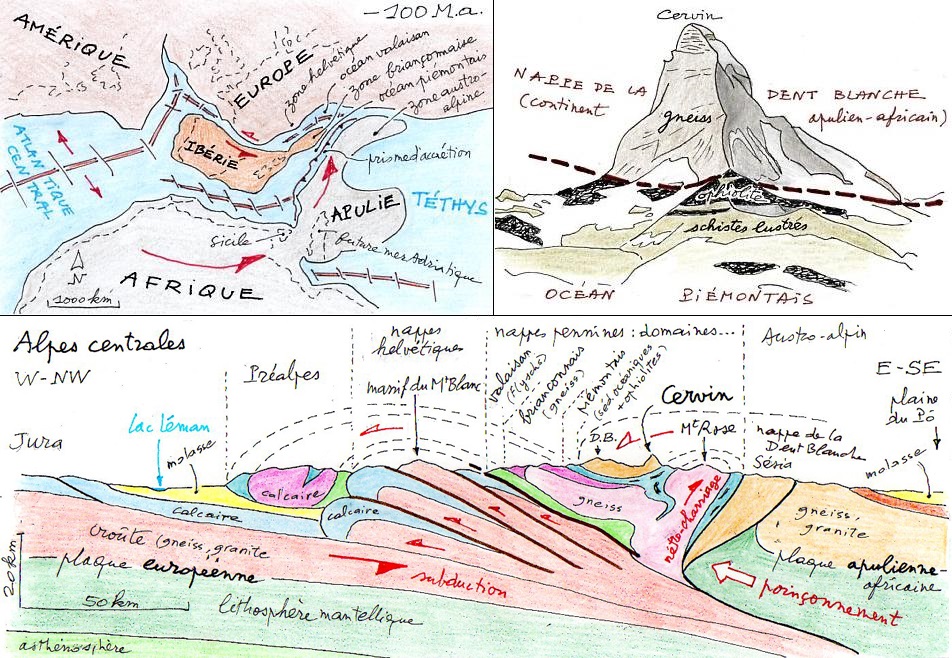 – 100 M.a.
AMÉRIQUE
EUROPE
zone helvétique
océan valaisan
zone briançonnaise
océan piémontais
zone austro-
alpine
ATLANTIQUE
CENTRAL
IBÉRIE
prisme d'accrétion
APULIE
TÉTHYS
Sicile
future mer Adriatique
N
AFRIQUE
1000 km
Cervin
NAPPE DE LA
(continent
DENT BLANCHE
apulien-africain)
gneiss
ophiolite
schistes lustrés
OCÉAN PIÉMONTAIS
Alpes centrales
W-NW
Préalpes
nappes
helvétiques
massif du Mt Blanc
nappes pennines : domaines...
valaisan
(flysch)
briançonnais
(gneiss)
piémontais
(séd. océaniques
+ ophiolites)
Austro-alpin
E-SE
Jura
lac Léman
molasse
D.B.
Cervin
Mt Rose
nappe de la
Dent Blanche
Sésia
plaine
du Pô
molasse
calcaire
calcaire
calcaire
gneiss
rétro-charriage
gneiss,
granite
croûte (gneiss, granite
plaque européenne
subduction
plaque apulienne
africaine
poinçonnement
20 km
50 km
lithosphère mantellique
asthénosphère